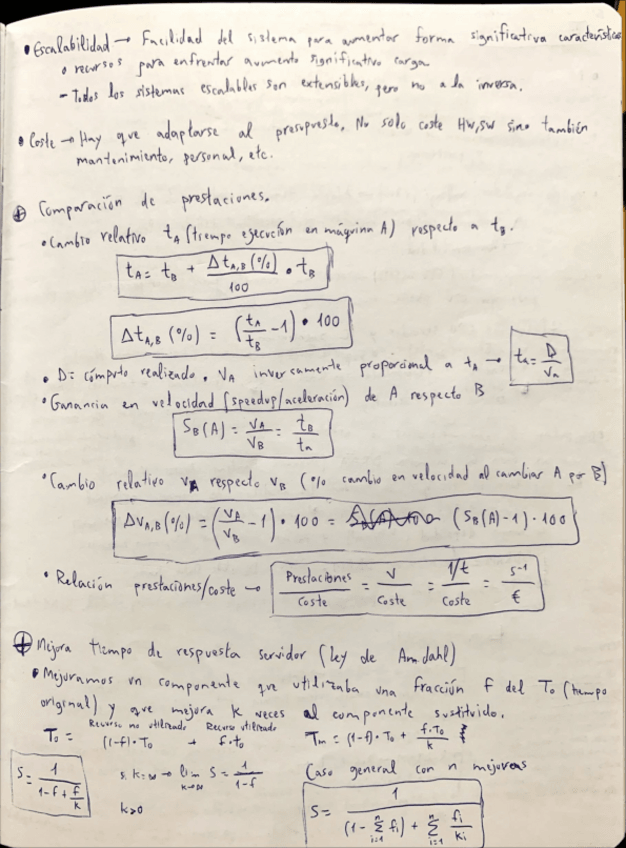 • Escalabilidad → Facilidad del sistema para aumentar forma significativa característic
o recursos para enfrentar aumento significativo carga
- Todos los sistemas escalables son extensibles, pero no a la inversa.
• Coste → Hay que adaptarse al presupuesto. No solo coste HW, SW sino también
mantenimiento, personal, etc.
⊕ Comparación de prestaciones.
• Cambio relativo t_A (tiempo ejecución en máquina A) respecto a t_B.
t_A = t_B + Δt_A,B (%) / 100 • t_B
Δt_A,B (%) = (t_A / t_B - 1) • 100
• D = cómputo realizado. V_A inversamente proporcional a t_A → t_a = D / V_a
• Ganancia en velocidad (speedup/aceleración) de A respecto B
S_B(A) = V_A / V_B = t_B / t_a
• Cambio relativo V_A respecto V_B (% cambio en velocidad al cambiar A por B)
ΔV_A,B (%) = (V_A / V_B - 1) • 100 = (S_B(A) - 1) • 100
• Relación prestaciones/coste → Prestaciones / Coste = V / Coste = 1/t / Coste = s⁻¹ / €
⊕ Mejora tiempo de respuesta servidor (Ley de Amdahl)
• Mejoramos un componente que utilizaba una fracción f del T_o (tiempo
original) y que mejora k veces al componente sustituido.
Recurso no utilizado Recurso utilizado
T_o = (1-f)•T_o + f•t_o T_m = (1-f)•T_o + f•T_o / k
S = 1 / (1 - f + f/k) si k=∞ → lim k→∞ S = 1 / (1-f) Caso general con n mejoras
k>0 S = 1 / ((1 - Σ_{i=1}^{n} f_i) + Σ_{i=1}^{n} f_i / k_i)